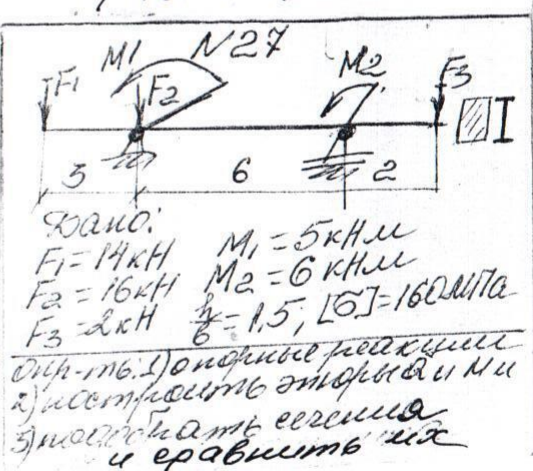 M1 N27
F1 F2 M2 F3
I
3 6 2
Дано:
F1=14кН M1=5кНм
F2=16кН M2=6кНм
F3=2кН h/b=1,5; [σ]=160мПа
опр-ть: 1) опорные реакции
2) построить эпюры Q и Ми
3) подобрать сечения
и сравнить их